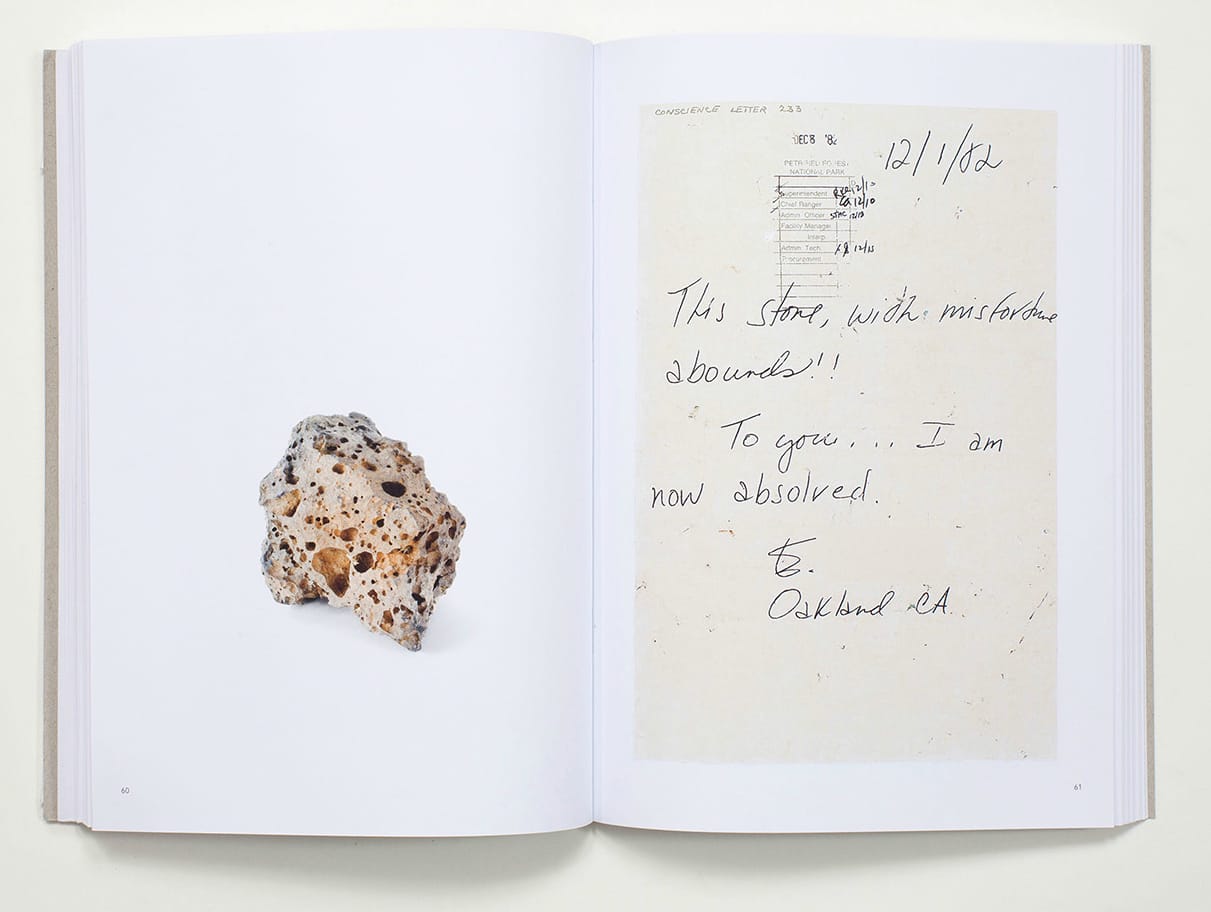 60
CONSCIENCE LETTER 233
DEC 8 '82
12/1/82
PETRIFIED FOREST
NATIONAL PARK
Superintendent 12/10
Chief Ranger 12/10
Admin Officer 12/13
Facility Manager
Interp.
Admin Tech 12/13
Procurement
This stone, with misfortune
abounds!!
To you... I am
now absolved.
Oakland CA.
61